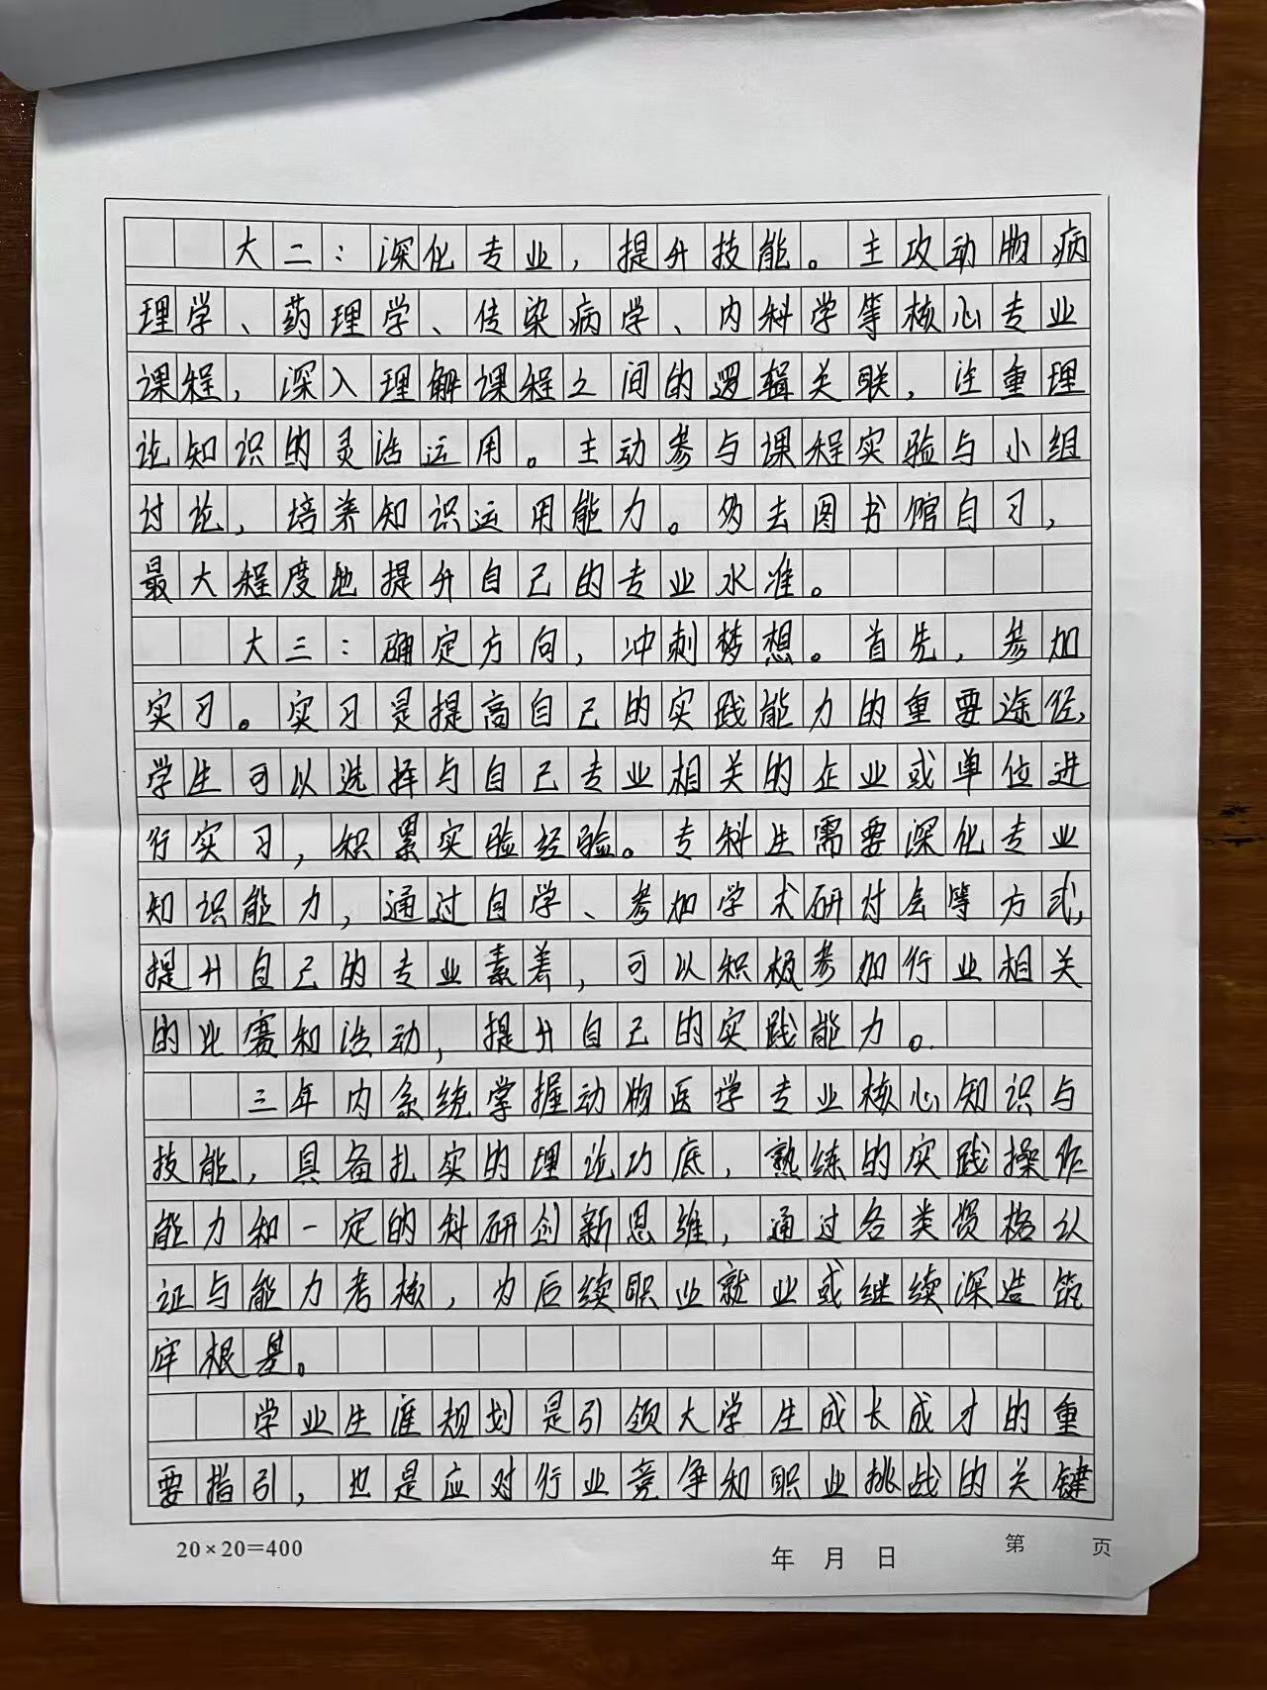 大二：深化专业，提升技能。主攻动物病
理学、药理学、传染病学、内科学等核心专业
课程，深入理解课程之间的逻辑关联，注重理
论知识的灵活运用。主动参与课程实验与小组
讨论，培养知识运用能力。多去图书馆自习，
最大程度地提升自己的专业水准。
大三：确定方向，冲刺梦想。首先，参加
实习。实习是提高自己的实践能力的重要途径，
学生可以选择与自己专业相关的企业或单位进
行实习，积累实验经验。专科生需要深化专业
知识能力，通过自学、参加学术研讨会等方式，
提升自己的专业素养，可以积极参加行业相关
的比赛和活动，提升自己的实践能力。
三年内系统掌握动物医学专业核心知识与
技能，具备扎实的理论功底，熟练的实践操作
能力和一定的科研创新思维，通过各类资格认
证与能力考核，为后续职业就业或继续深造筑
牢根基。
学业生涯规划是引领大学生成长成才的重
要指引，也是应对行业竞争和职业挑战的关键
20×20=400
年 月 日
第 页